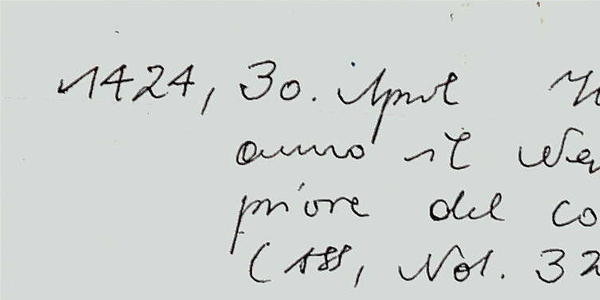 1424, 30. April
anno il
priore del co
(ASS, Not. 32